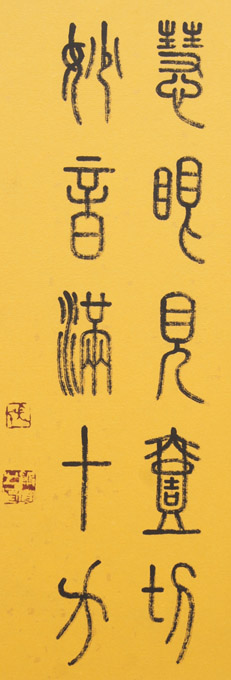 慧眼見壹切
妙音滿十方